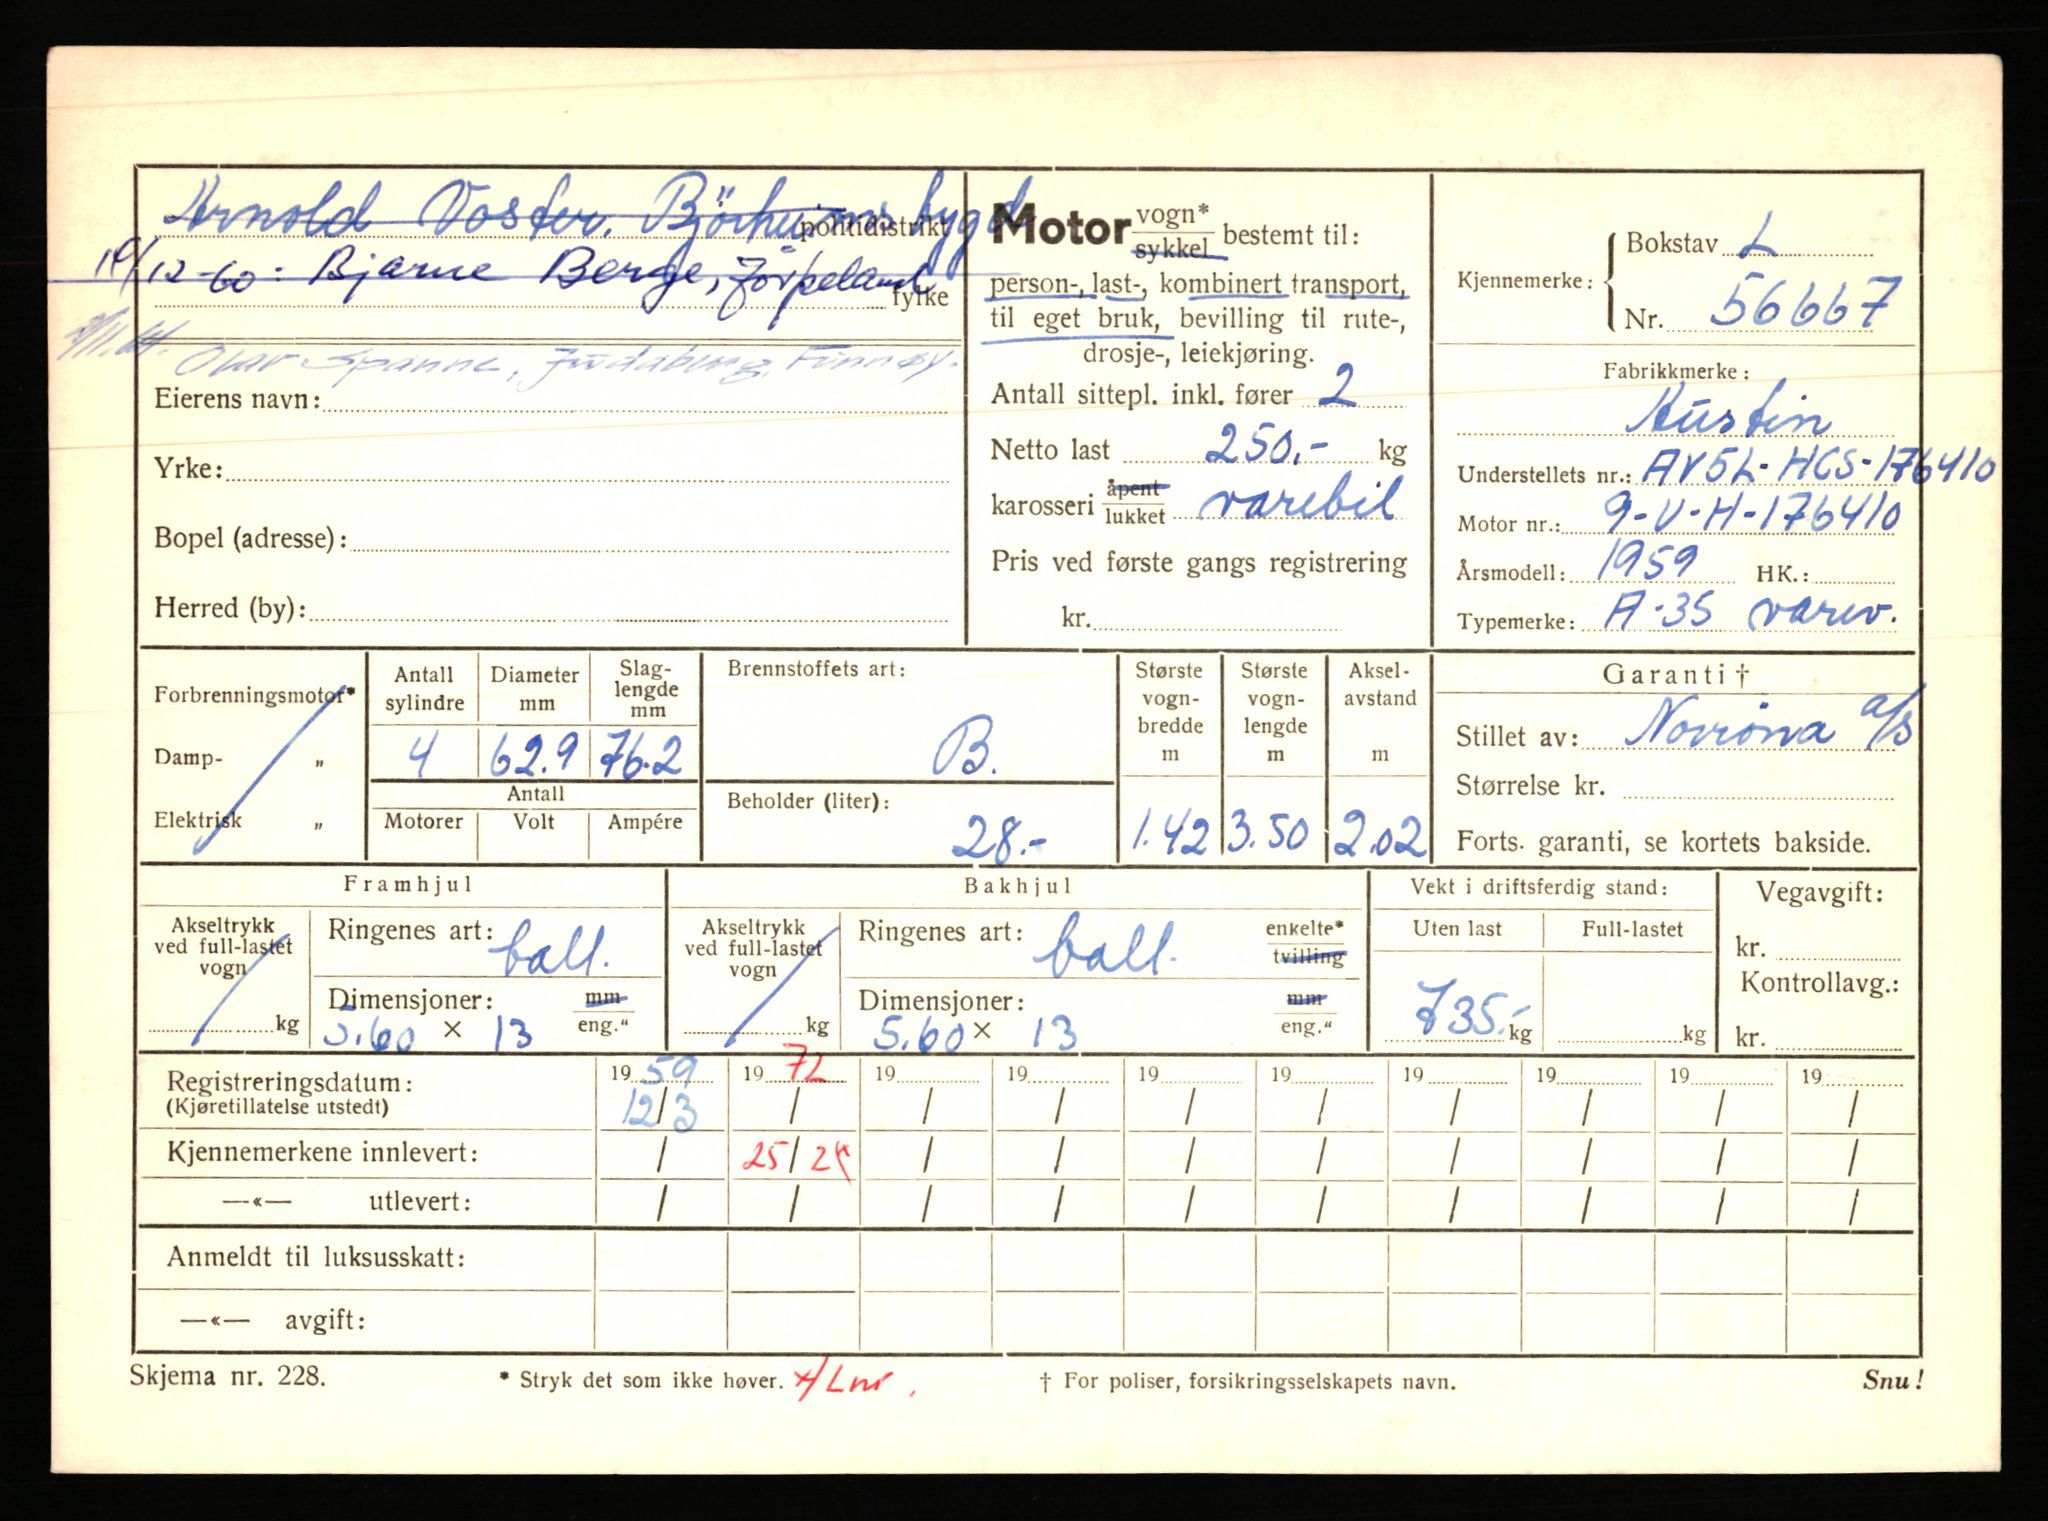 Arnold Voster, Björheimsbygd
politidistrikt
12-60: Bjarne Berge, Jörpeland
fylke
Spanne, Judaberg, Finnøy.
Eierens navn:
Yrke:
Bopel (adresse):
Herred (by):
Motor vogn* sykkel bestemt til:
person-, last-, kombinert transport,
til eget bruk, bevilling til rute-,
drosje-, leiekjøring.
Antall sittepl. inkl. fører 2
Netto last 250.- kg
karosseri åpent lukket varebil
Pris ved første gangs registrering
kr.
Kjennemerke: Bokstav L
Nr. 56667
Fabrikkmerke:
Austin
Understellets nr.: AV5L-HCS-176410
Motor nr.: 9-V-H-176410
Årsmodell: 1959 HK.:
Typemerke: A-35 varev.
Forbrenningsmotor*
Damp- „
Elektrisk „
Antall sylindre Diameter mm Slag-lengde mm
4 62.9 76.2
Antall
Motorer Volt Ampére
Brennstoffets art:
B.
Beholder (liter):
28.-
Største vogn-bredde m Største vogn-lengde m Aksel-avstand m
1.42 3.50 2.02
Garanti †
Stillet av: Norröna a/s
Størrelse kr.
Forts. garanti, se kortets bakside.
Framhjul
Akseltrykk ved full-lastet vogn
kg
Ringenes art: ball.
Dimensjoner: mm
5.60 × 13 eng."
Bakhjul
Akseltrykk ved full-lastet vogn
kg
Ringenes art: ball. enkelte* tvilling
Dimensjoner: mm
5.60 × 13 eng."
Vekt i driftsferdig stand:
Uten last Full-lastet
735.- kg kg
Vegavgift:
kr.
Kontrollavg.:
kr.
Registreringsdatum: 19 59 19 72 19 19 19 19 19 19 19 19
(Kjøretillatelse utstedt) 12/3 / / / / / / / / /
Kjennemerkene innlevert: / 25/ / / / / / / / /
—«— utlevert: / / / / / / / / / /
Anmeldt til luksusskatt:
—«— avgift:
Skjema nr. 228. * Stryk det som ikke høver. † For poliser, forsikringsselskapets navn. Snu!